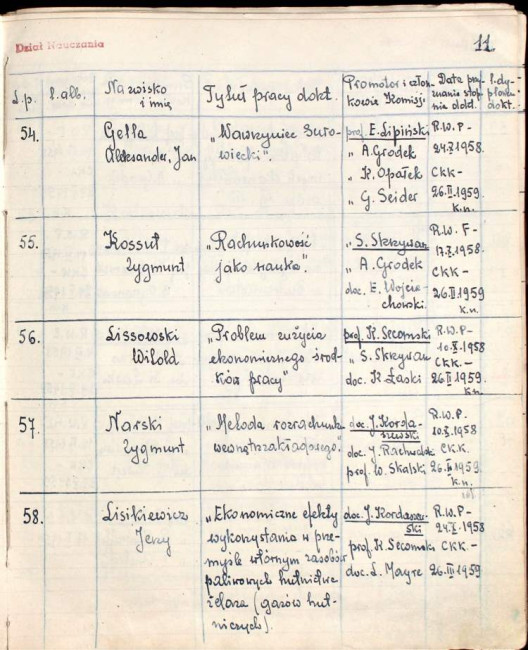 Dział Nauczania
11
L.p.
l. alb.
Nazwisko
i imię
Tytuł pracy dokt.
Promotor i człon-
kowie Komisji
Data przy-
znania stop-
nia dokt.
l. dy-
plomu
dokt.
54.
Gella
Aleksander, Jan
„Wawrzyniec Suro-
wiecki".
prof. E. Lipiński
„ A. Grodek
„ K. Opałek
„ G. Seider
R.W.P-
1958.
CKK-
1959.
k.n.
55.
Kossut
Zygmunt
„Rachunkowość
jako nauka".
„ S. Skrzywan
„ A. Grodek
doc. E. Wojcie-
chowski.
R.W. F-
1958.
CKK-
26.II.1959
k.n.
56.
Lissowski
Witold
„Problem zużycia
ekonomicznego środ-
ków pracy"
prof. K. Secomski
„ S. Skrzywan
doc. K. Łaski
R.W.P-
1958
CKK.-
26.II.1959.
k.n.
57.
Narski
Zygmunt
„Metoda rozrachunku
wewnątrzzakładowego".
doc. J. Korda-
szewski
doc. J. Rachwalski
prof. W. Skalski
R.W.P.
1958
C.K.K.
1959.
k.n.
58.
Lisikiewicz
Jerzy
„Ekonomiczne efekty
wykorzystania w prze-
myśle wtórnym zasobów
paliwowych hutnictwa
żelaza (gazów hut-
niczych).
doc. J. Kordaszew-
ski
prof. K. Secomski
doc. L. Mayre
R.W.P-
1958
CKK-
1959